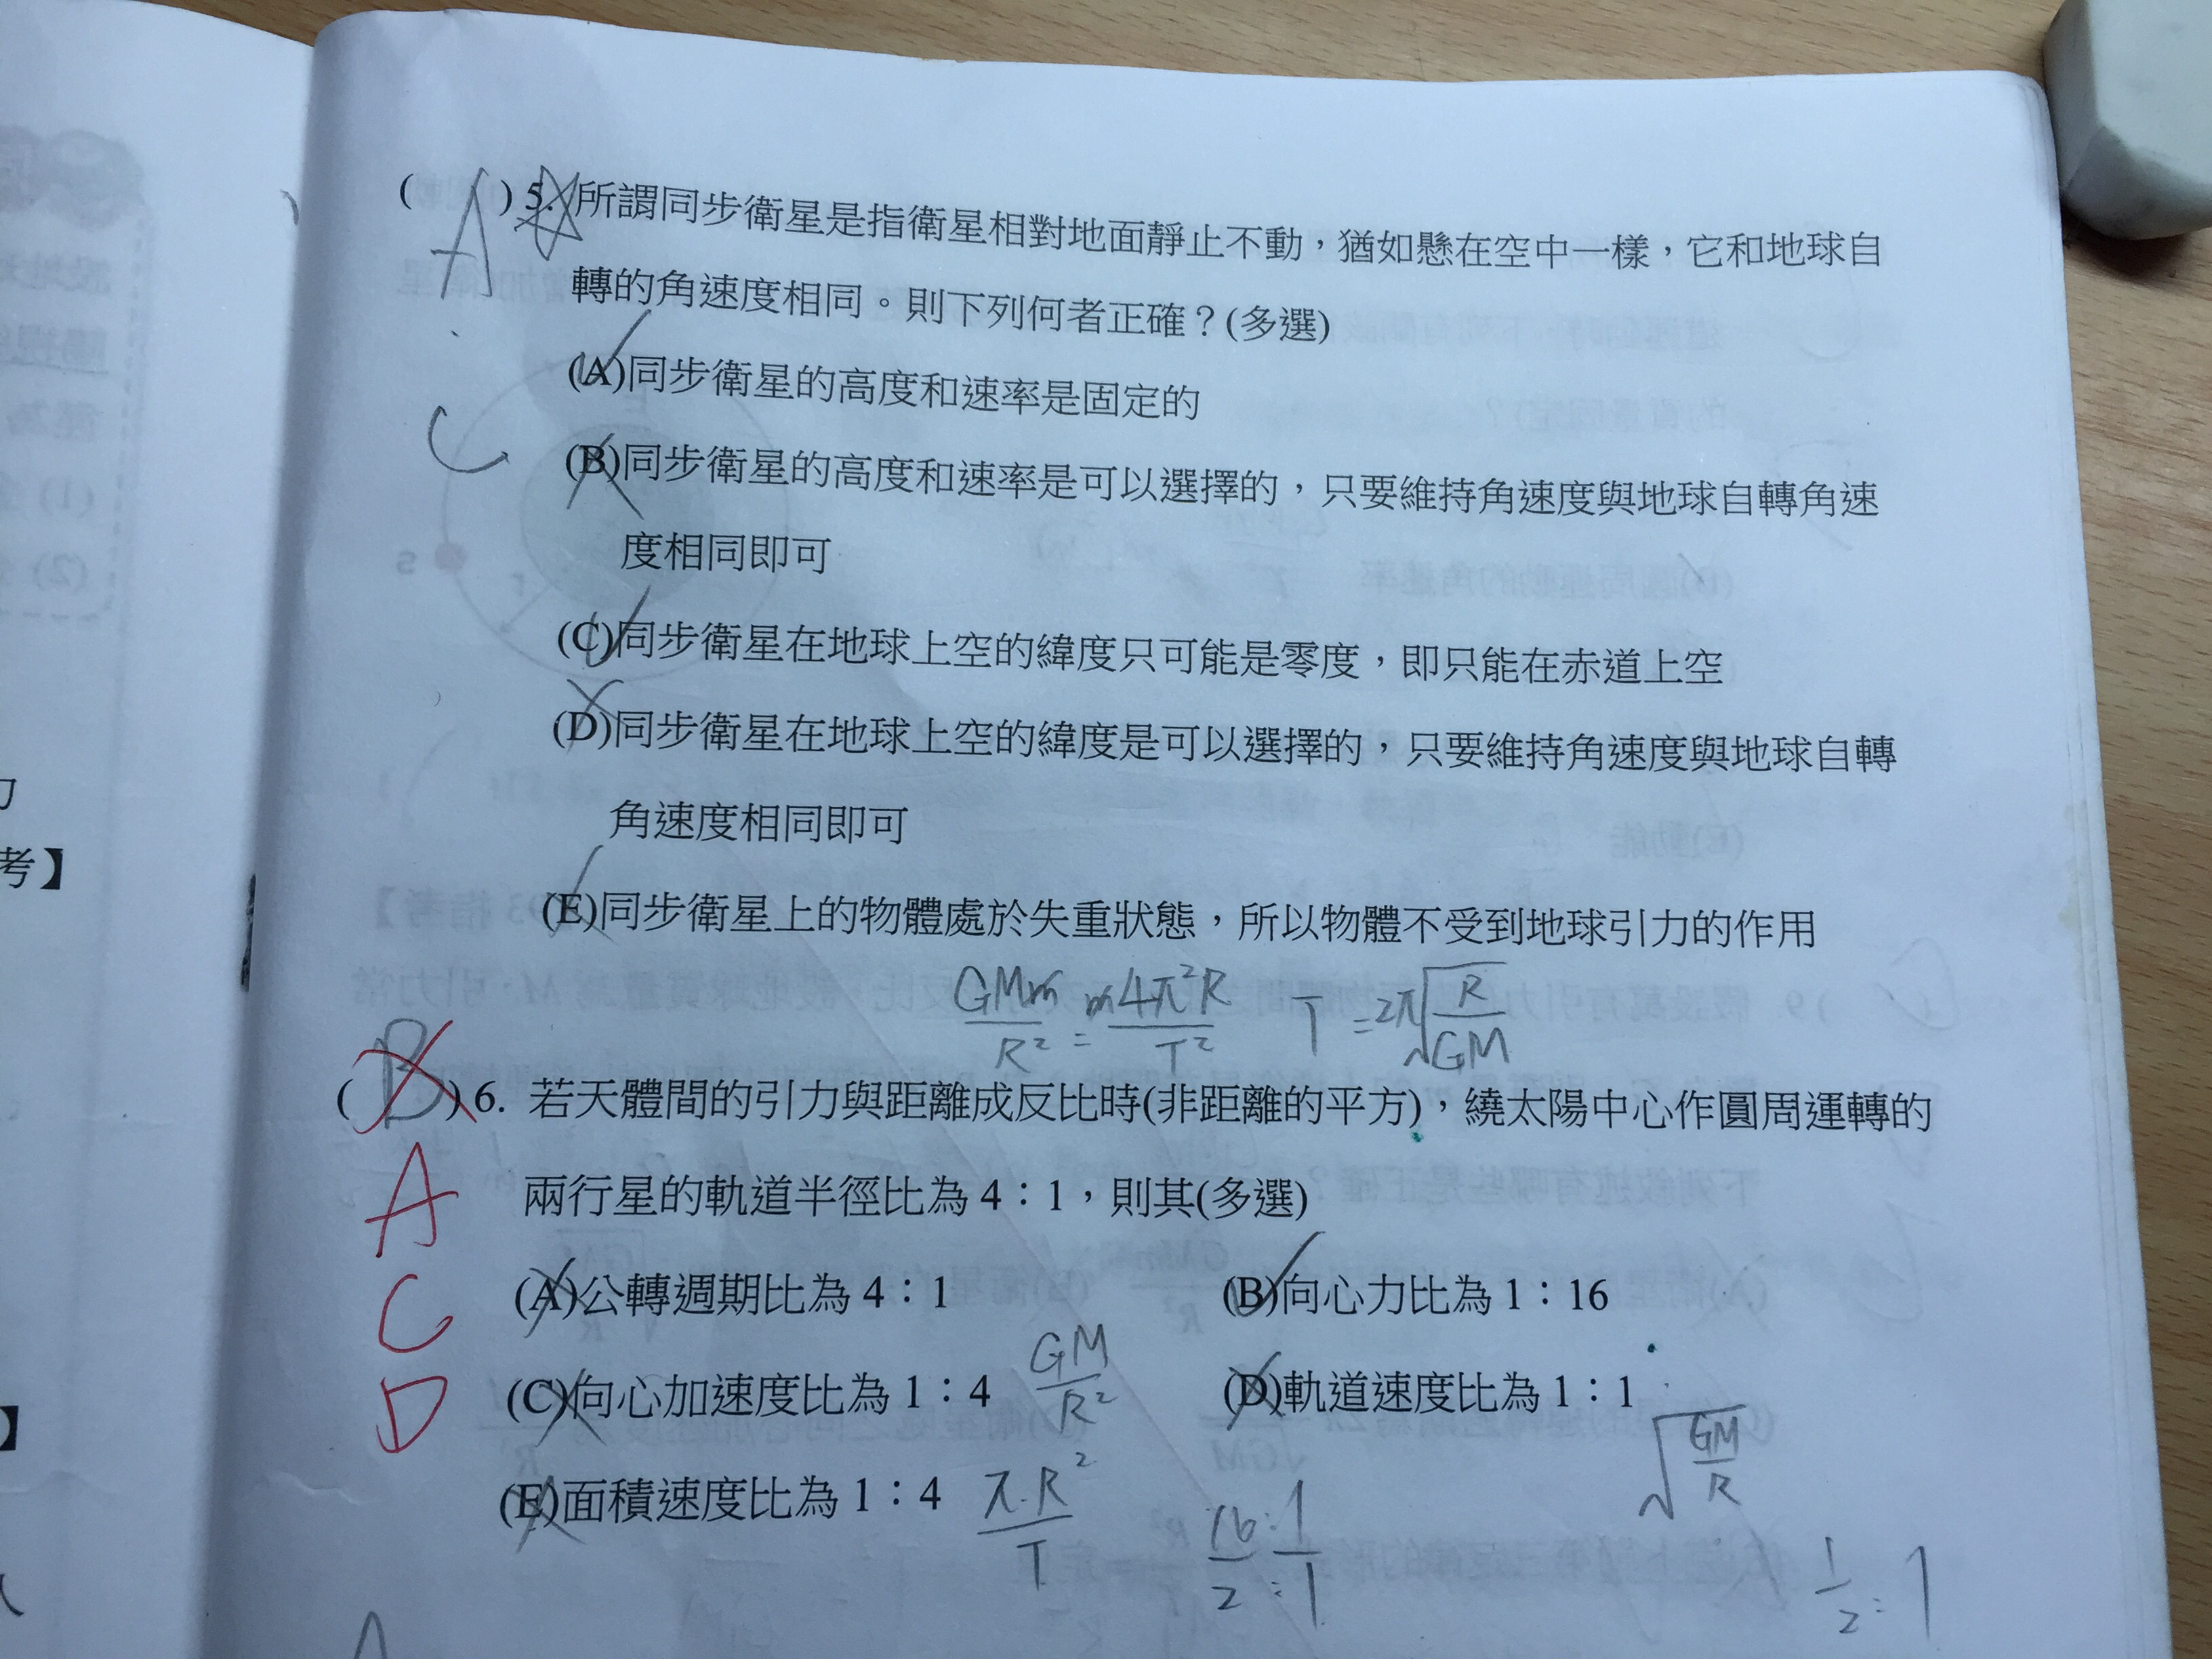 ( A ) 5. 所謂同步衛星是指衛星相對地面靜止不動，猶如懸在空中一樣，它和地球自
轉的角速度相同。則下列何者正確？(多選)
(A)同步衛星的高度和速率是固定的
C
(B)同步衛星的高度和速率是可以選擇的，只要維持角速度與地球自轉角速
度相同即可
(C)同步衛星在地球上空的緯度只可能是零度，即只能在赤道上空
(D)同步衛星在地球上空的緯度是可以選擇的，只要維持角速度與地球自轉
角速度相同即可
(E)同步衛星上的物體處於失重狀態，所以物體不受到地球引力的作用
GMm/R² = m4π²R/T² T = 2π√(R/GM)
( B ) 6. 若天體間的引力與距離成反比時(非距離的平方)，繞太陽中心作圓周運轉的
A
兩行星的軌道半徑比為 4：1，則其(多選)
C
(A)公轉週期比為 4：1 (B)向心力比為 1：16
D
(C)向心加速度比為 1：4 GM/R² (D)軌道速度比為 1：1
√(GM/R)
(E)面積速度比為 1：4 π·R²/T 16:1/2:1 1/2:1
考】
】
(1)
(2)
S
r